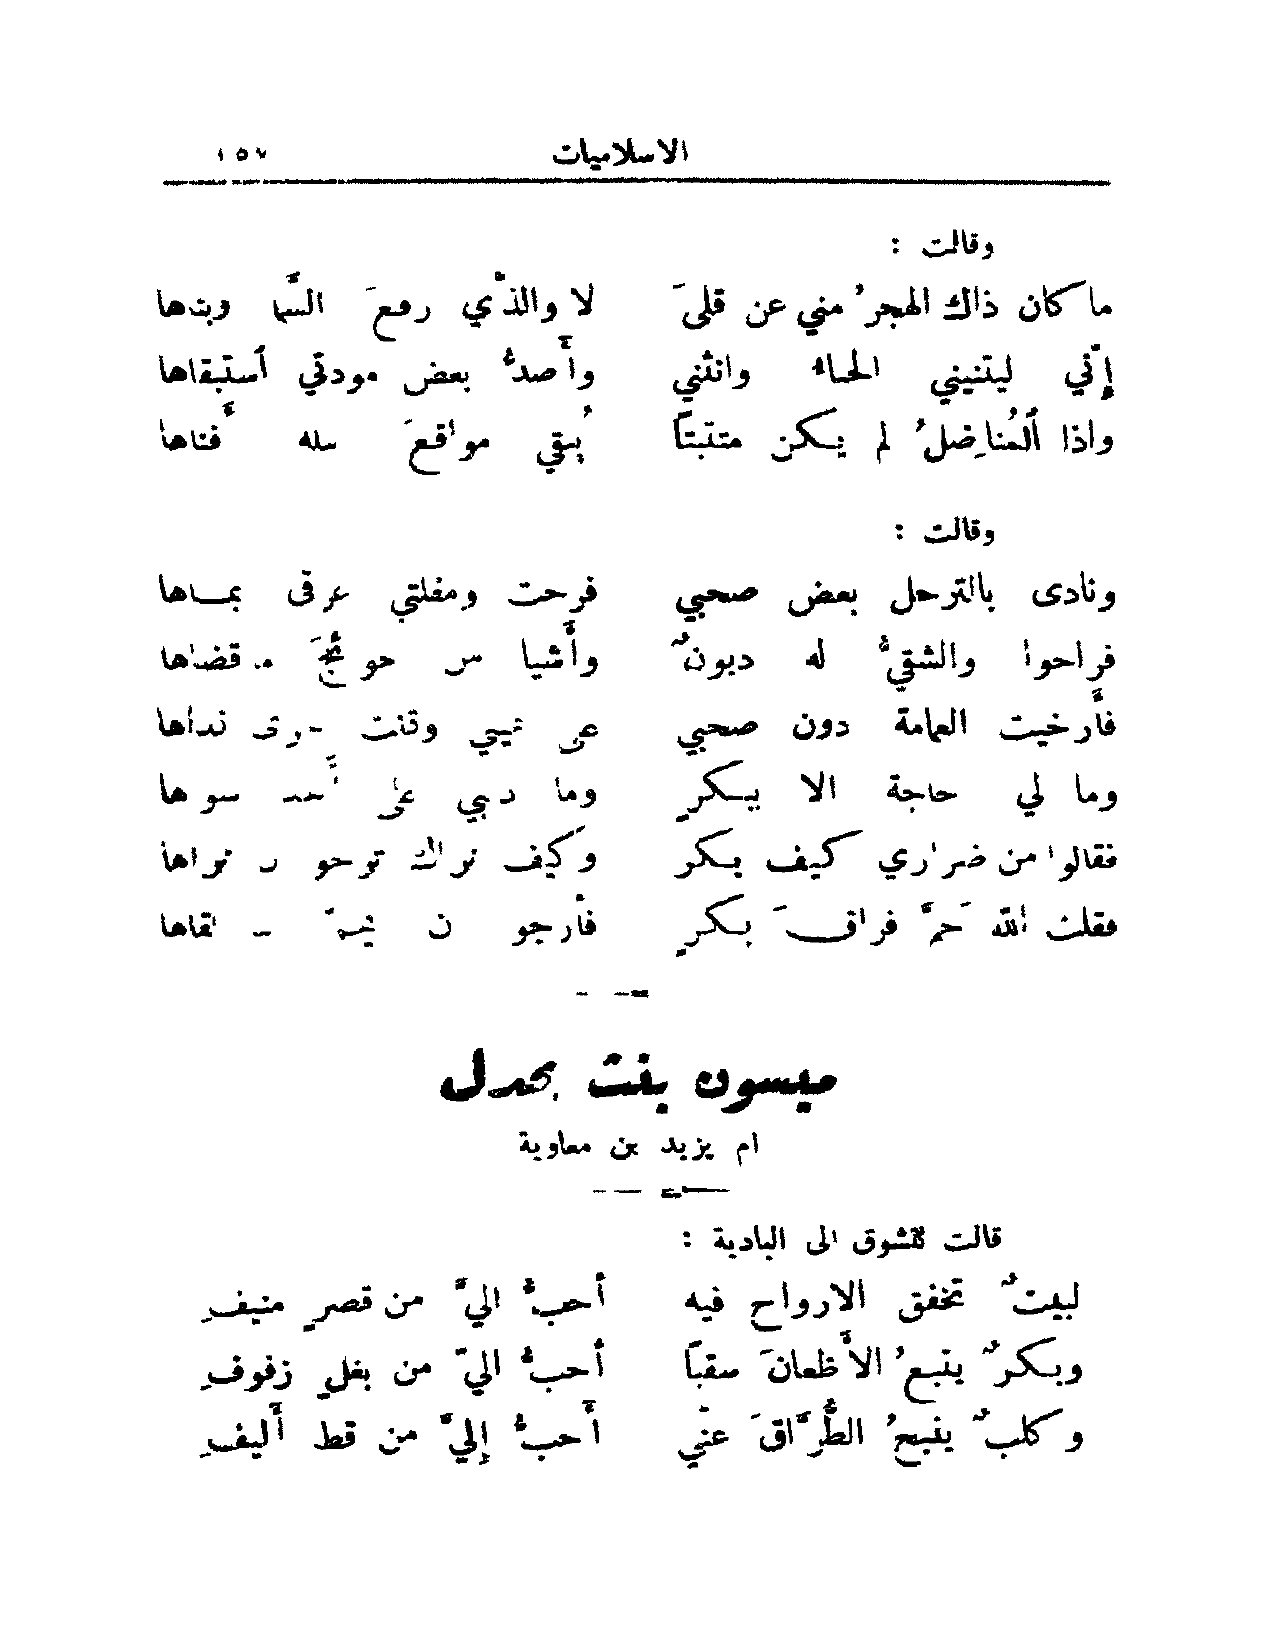 الاسلاميات ١٥٧
وقالت :
ما كان ذاك الهجرُ مني عن قلىَ لا والذّي رفعَ السَّما وبناها
إنّي ليثنيني الحياء وانثني وأصدُّ بعض مودتي أستبقاها
واذا ٱلمُناضِلُ لم يكن متثبتاً يُبقي مواقعَ نبله أفناها
وقالت :
ونادى بالترحل بعض صحبي فرحت ومقلتي غرقى بماها
فراحوا والشقيُّ له ديونٌ وأشيا من حوائجَ ما قضاها
فأرخيت العمامة دون صحبي على عيني وقلت جرى نداها
وما لي حاجة الا ببكرٍ وما دمعي على أحد سواها
فقالوا من ضراري كيف بكر وكيف نراك ترجو ان نراها
فقلت الله حمَّ فراقَ بكرٍ فأرجو ان لقاها
ميسون بنت بحدل
ام يزيد بن معاوية
قالت تتشوق الى البادية :
لبيتٌ تخفق الارواح فيه أحبُّ اليَّ من قصرٍ منيفِ
وبكرٌ يتبعُ الأظعانَ سقباً أحبُّ اليَّ من بغلٍ زفوفِ
وكلبٌ ينبحُ الطُّرَّاقَ عنّي أحبُّ إليَّ من قط أليفِ